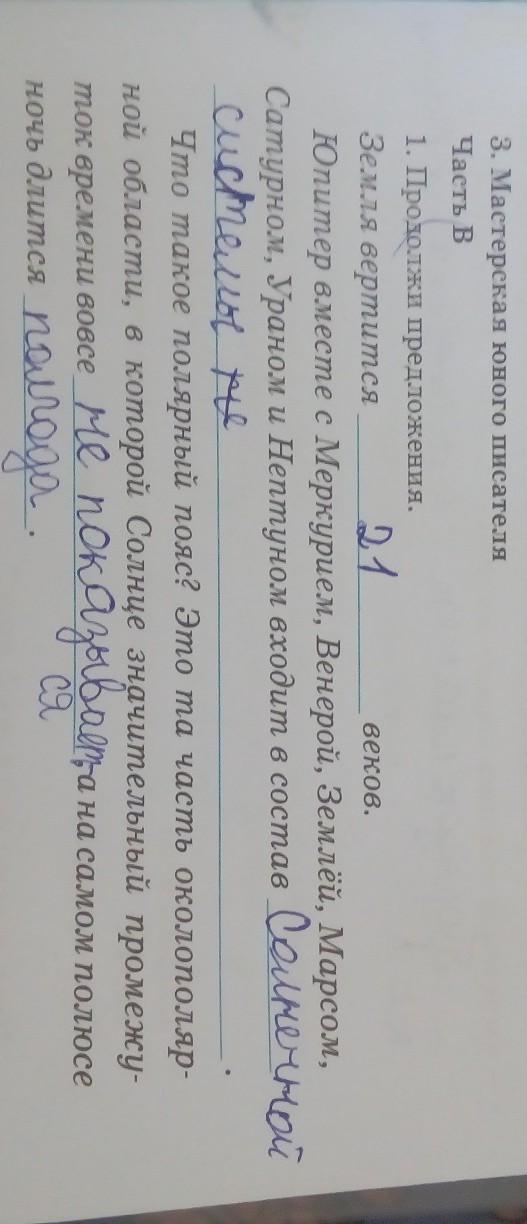 3. Мастерская юного писателя
Часть В
1. Продолжи предложения.
Земля вертится 21 веков.
Юпитер вместе с Меркурием, Венерой, Землёй, Марсом,
Сатурном, Ураном и Нептуном входит в состав Солнечной
системы .
Что такое полярный пояс? Это та часть околополяр-
ной области, в которой Солнце значительный промежу-
ток времени вовсе не показывает, а на самом полюсе
ся
ночь длится полгода.